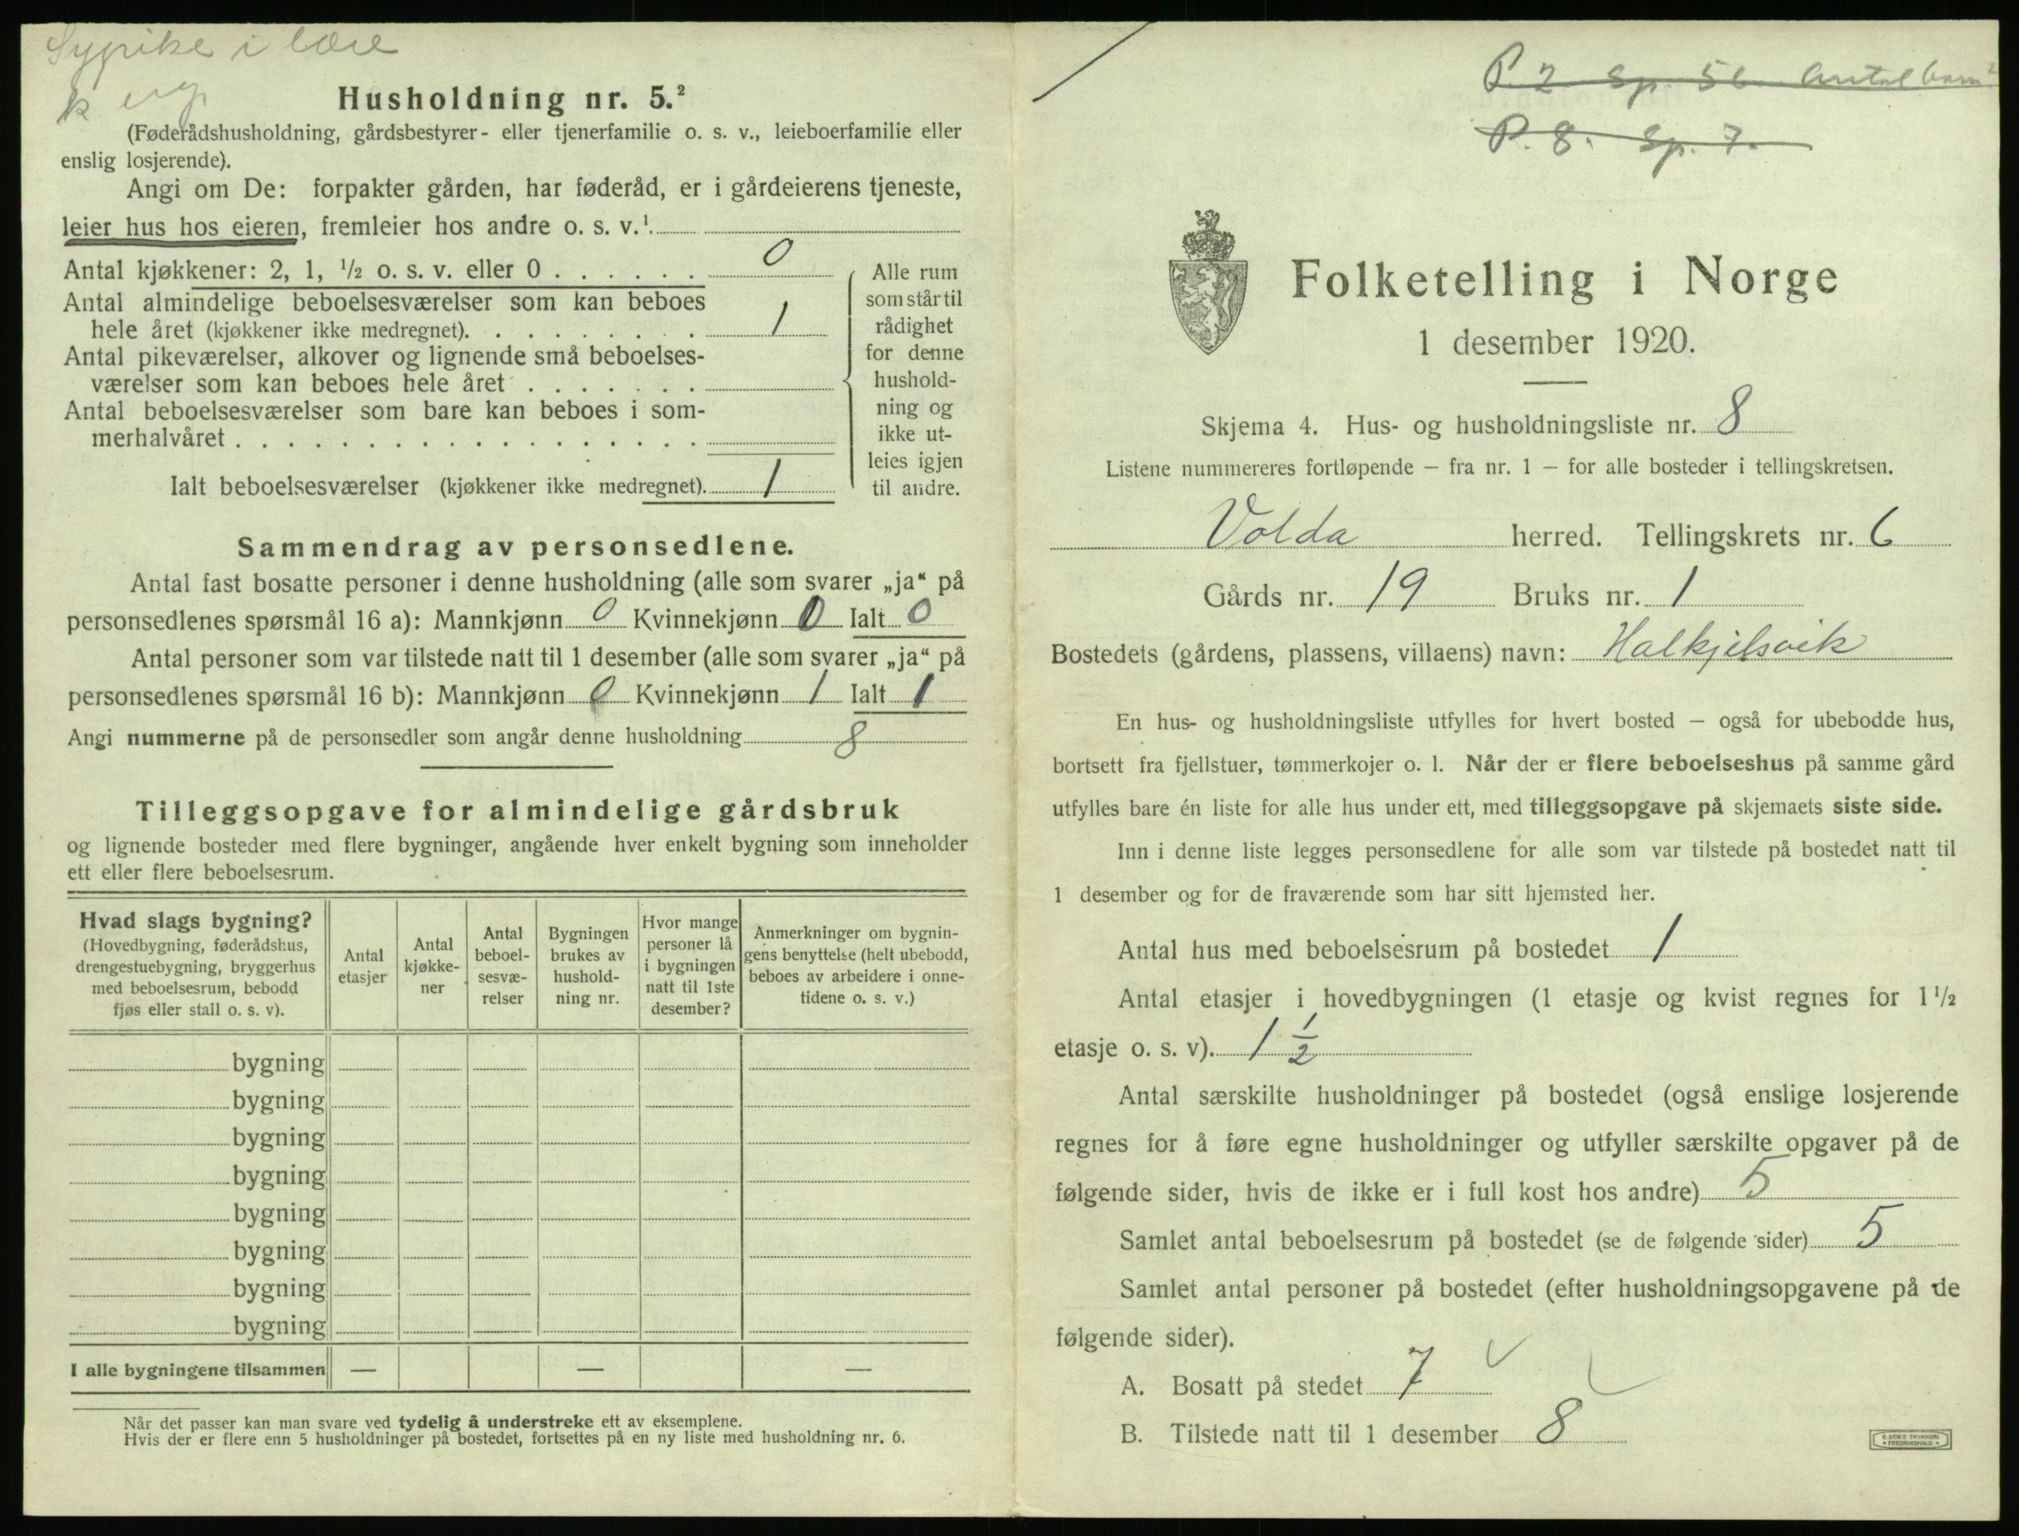 Syprike i lære
Husholdning nr. 5.²
(Føderådshusholdning, gårdsbestyrer- eller tjenerfamilie o. s. v., leieboerfamilie eller
enslig losjerende).
Angi om De: forpakter gården, har føderåd, er i gårdeierens tjeneste,
leier hus hos eieren, fremleier hos andre o. s. v.¹
Antal kjøkkener: 2, 1, ½ o. s. v. eller 0 . . . . . . 0
Antal almindelige beboelsesværelser som kan beboes
hele året (kjøkkener ikke medregnet). . . . . . . . . 1
Antal pikeværelser, alkover og lignende små beboelses-
værelser som kan beboes hele året . . . . . . .
Antal beboelsesværelser som bare kan beboes i som-
merhalvåret . . . . . . . . . . . . . . . . . .
Ialt beboelsesværelser (kjøkkener ikke medregnet). 1
Alle rum
som står til
rådighet
for denne
hushold-
ning og
ikke ut-
leies igjen
til andre.
Sammendrag av personsedlene.
Antal fast bosatte personer i denne husholdning (alle som svarer „ja“ på
personsedlenes spørsmål 16 a): Mannkjønn 0 Kvinnekjønn 0 Ialt 0
Antal personer som var tilstede natt til 1 desember (alle som svarer „ja“ på
personsedlenes spørsmål 16 b): Mannkjønn 0 Kvinnekjønn 1 Ialt 1
Angi nummerne på de personsedler som angår denne husholdning 8
Tilleggsopgave for almindelige gårdsbruk
og lignende bosteder med flere bygninger, angående hver enkelt bygning som inneholder
ett eller flere beboelsesrum.
Hvad slags bygning?
(Hovedbygning, føderådshus,
drengestuebygning, bryggerhus
med beboelsesrum, bebodd
fjøs eller stall o. s. v).
Antal
etasjer
Antal
kjøkke-
ner
Antal
beboel-
sesvæ-
relser
Bygningen
brukes av
hushold-
ning nr.
Hvor mange
personer lå
i bygningen
natt til 1ste
desember?
Anmerkninger om bygnin-
gens benyttelse (helt ubebodd,
beboes av arbeidere i onne-
tidene o. s. v.)
bygning
bygning
bygning
bygning
bygning
bygning
bygning
bygning
I alle bygningene tilsammen — — —
Når det passer kan man svare ved tydelig å understreke ett av eksemplene.
Hvis der er flere enn 5 husholdninger på bostedet, fortsettes på en ny liste med husholdning nr. 6.
P. 2 Sp. 5b. Antal barn
P. 8. Sp. 7.
Folketelling i Norge
1 desember 1920.
Skjema 4. Hus- og husholdningsliste nr. 8
Listene nummereres fortløpende – fra nr. 1 – for alle bosteder i tellingskretsen.
Volda herred. Tellingskrets nr. 6
Gårds nr. 19 Bruks nr. 1
Bostedets (gårdens, plassens, villaens) navn: Halkjelsvik
En hus- og husholdningsliste utfylles for hvert bosted – også for ubebodde hus,
bortsett fra fjellstuer, tømmerkojer o. l. Når der er flere beboelseshus på samme gård
utfylles bare én liste for alle hus under ett, med tilleggsopgave på skjemaets siste side.
Inn i denne liste legges personsedlene for alle som var tilstede på bostedet natt til
1 desember og for de fraværende som har sitt hjemsted her.
Antal hus med beboelsesrum på bostedet 1
Antal etasjer i hovedbygningen (1 etasje og kvist regnes for 1½
etasje o. s. v). 1 ½
Antal særskilte husholdninger på bostedet (også enslige losjerende
regnes for å føre egne husholdninger og utfyller særskilte opgaver på de
følgende sider, hvis de ikke er i full kost hos andre) 5
Samlet antal beboelsesrum på bostedet (se de følgende sider) 5
Samlet antal personer på bostedet (efter husholdningsopgavene på de
følgende sider).
A. Bosatt på stedet 7
B. Tilstede natt til 1 desember 8
E. SEM'S TRYKKERI
FREDRIKSHALD